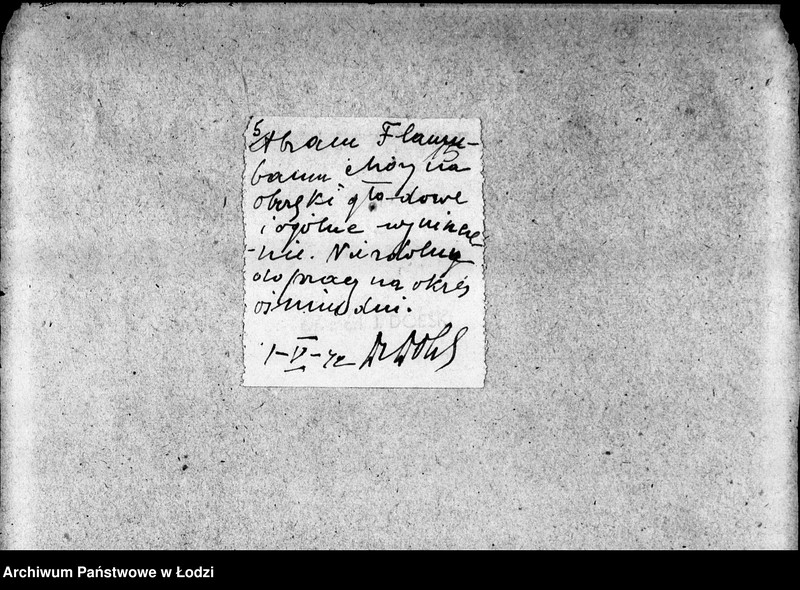 5
Abram Flamm-
baum chory na
obrzęki głodowe
i ogólne wyniszcze
-nie. Niezdolny
do pracy na okres
ośmiu dni.
1-V-42 Dr
Archiwum Państwowe w Łodzi